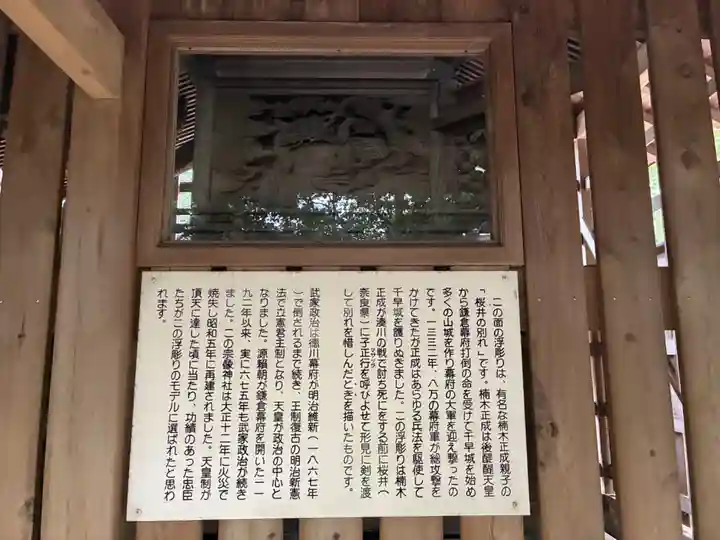 この面の浮彫りは、有名な楠木正成親子の
「桜井の別れ」です。楠木正成は後醍醐天皇
から鎌倉幕府打倒の命を受けて千早城を始め
多くの山城を作り幕府の大軍を迎え撃ったの
です。一三三二年、八万の幕府軍が総攻撃を
かけてきたが正成はあらゆる兵法を駆使して
千早城を護りぬきました。この浮彫りは楠木
正成が湊川の戦で討ち死にをする前に桜井(
奈良県)に子正行を呼びよせて形見に剣を渡
マサツラ
して別れを惜しんだときを描いたものです。
武家政治は徳川幕府が明治維新(一八六七年
)で倒されるまで続き、王制復古の明治新憲
法で立憲君主制となり、天皇が政治の中心と
なりました。源頼朝が鎌倉幕府を開いた一一
九二年以来、実に六七五年も武家政治が続き
ました。この宗像神社は大正十二年に火災で
焼失し昭和五年に再建されました。天皇制が
頂天に達した頃に当たり、功績のあった忠臣
たちがこの浮彫りのモデルに選ばれたと思わ
れます。